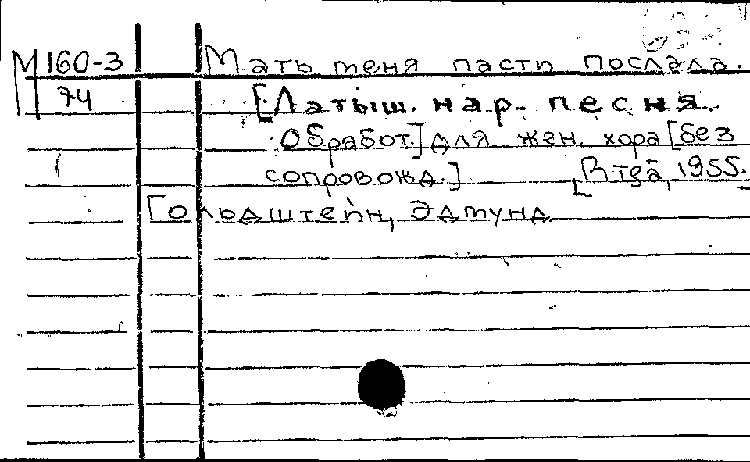 М160-3 Мать меня пасти послала.
74 [Латыш. нар. песня.
Обработ.] для жен. хора [без
сопровожд.] [Рига, 1955.
Гольдштейн, Эдмунд